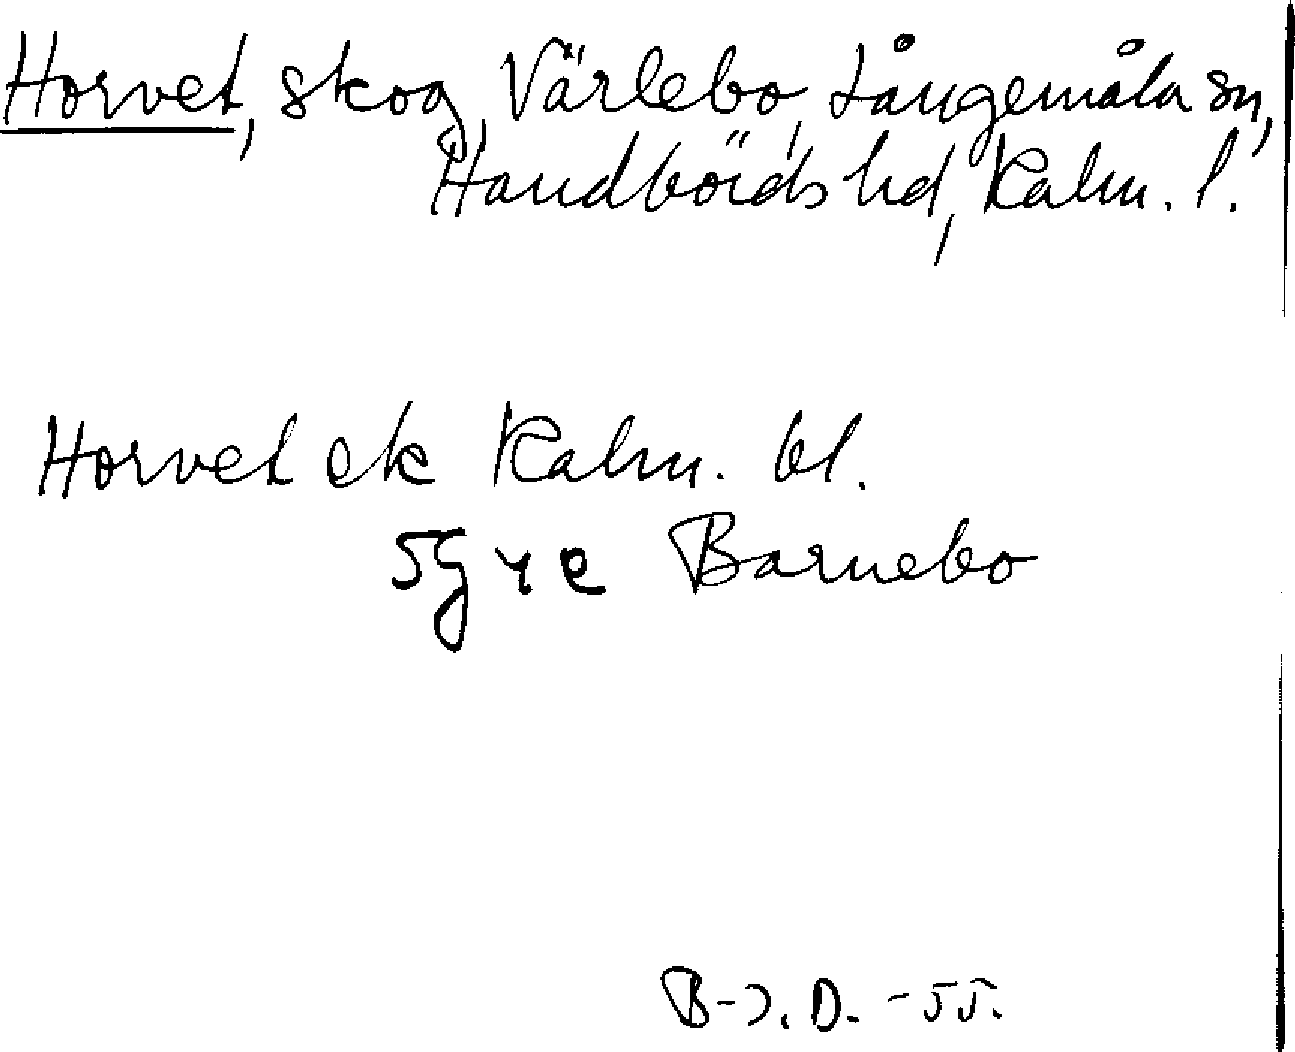 Horvet, skog, Värlebo, Långemåla sn,
Handbörds hd, Kalm. l.
Horvet ek Kalm. bl.
5g y e Barnebo
B-J. D. -55.